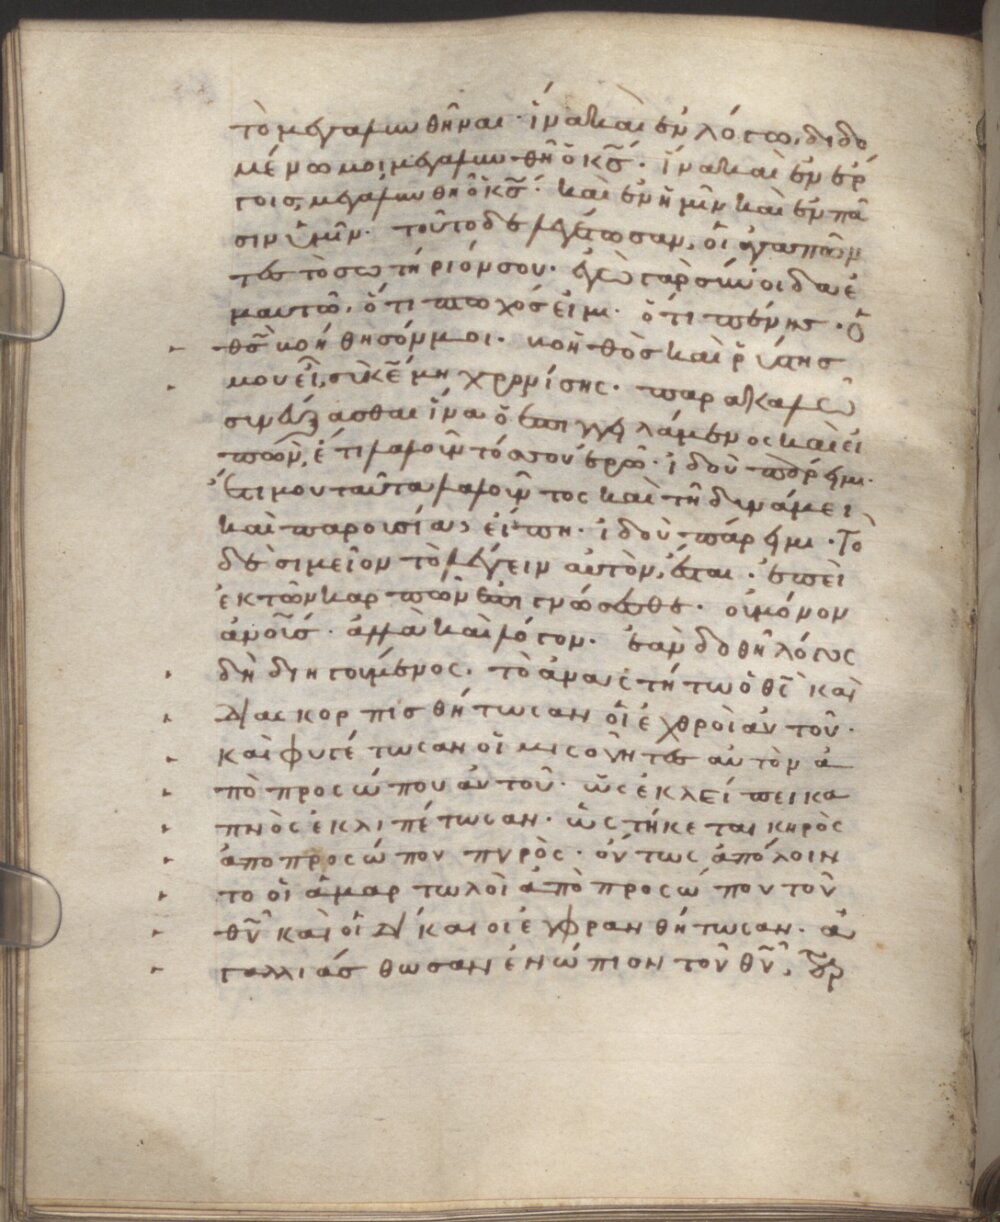 τὸ μεγαλυνθῆναι· ἵνα καὶ ἐν λόγω, διδο
μένω μοι μεγαλυνθῆ ὁ κ̅ς̅· ἵνα καὶ ἐν ἔρ
γοις, μεγαλυνθῆ ὁ κ̅ς̅· καὶ ἐν ἡμῖν καὶ ἐν πᾶ
σιν ὑμῖν· τοῦτο δὲ λεγέτωσαν, οἱ ἀγαπῶν
τες τὸ σωτήριόν σου· ἐγὼ γὰρ σύνοιδα ἐ
μαυτῶ, ὅτι πτωχός εἰμι· ὅτι πένης· ὁ
θ̅ς̅ βοήθησόν μοι· βοηθὸς καὶ ῥύστης
μου εἶ, σὺ κ̅ε̅ μὴ χρονίσης· παρακαλῶ
συνεύξασθαι ἵνα ὁ ἐπαγγειλάμενος καὶ εἰ
πὼν, ἔτι λαλοῦντός σου ἐρῶ· ἰδοὺ πάρειμι·
ἔτι μου ταῦτα λαλοῦντος καὶ τῆ δυνάμει
καὶ παρουσία, εἴπη· ἰδοὺ πάρειμι· Τὸ
δὲ σιμεῖον τὸ λέγειν αὐτὸν, ἔσται· ἐπεὶ
ἐκ τῶν καρπῶν ἐπιγνώσεσθε· οὐ μόνον
ἀν̅ο̅ῖς· ἀλλὰ καὶ λόγον· ἐὰν δοθῆ λόγος
δὴ διηγούμενος· τὸ ἀναστήτω ὁ θ̅ς̅ καὶ
διασκορπισθήτωσαν οἱ ἐχθροὶ αὐτοῦ·
καὶ φυγέτωσαν οἱ μισοῦντες αὐτὸν ἀ
πὸ προσώπου αὐτοῦ· ὡς ἐκλείπει κα
πνὸς ἐκλιπέτωσαν· ὡς τήκεται κηρὸς
ἀπο προσώπου πυρὸς· οὕτως ἀπόλοιν
το οἱ ἁμαρτωλοὶ ἀπὸ προσώπου τοῦ
θ̅υ̅ καὶ οἱ δίκαιοι εὐφρανθήτωσαν· ἀ
γαλλιάσθωσαν ἐνώπιον τοῦ θ̅υ̅,